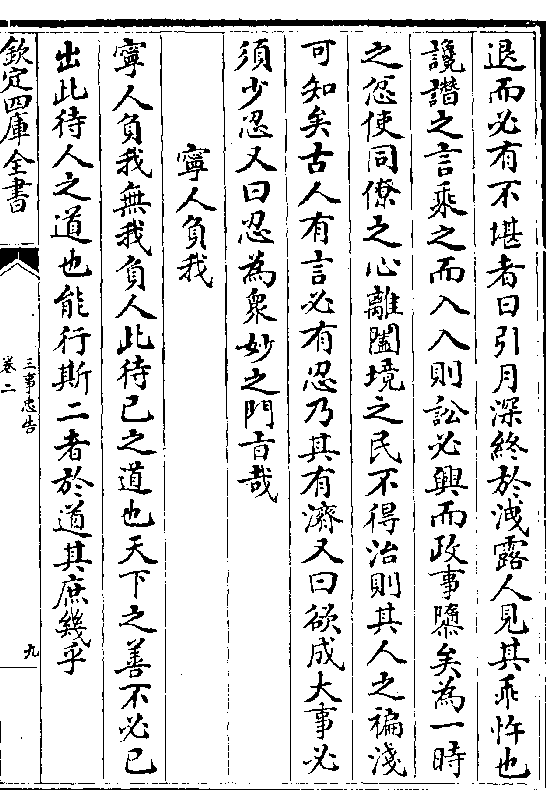 退而必有不堪者日引月深終於洩露人見其乖忤也
讒譖之言乘之而入入則訟必興而政事隳矣為一時
之忿使同僚之心離闔境之民不得治則其人之褊淺
可知矣古人有言必有忍乃其有濟又曰欲成大事必
須少忍又曰忍為衆妙之門旨哉
寧人負我
寧人負我無我負人此待已之道也天下之善不必已
出此待人之道也能行斯二者於道其庶幾乎
欽定四庫全書
三事忠告
卷二
九